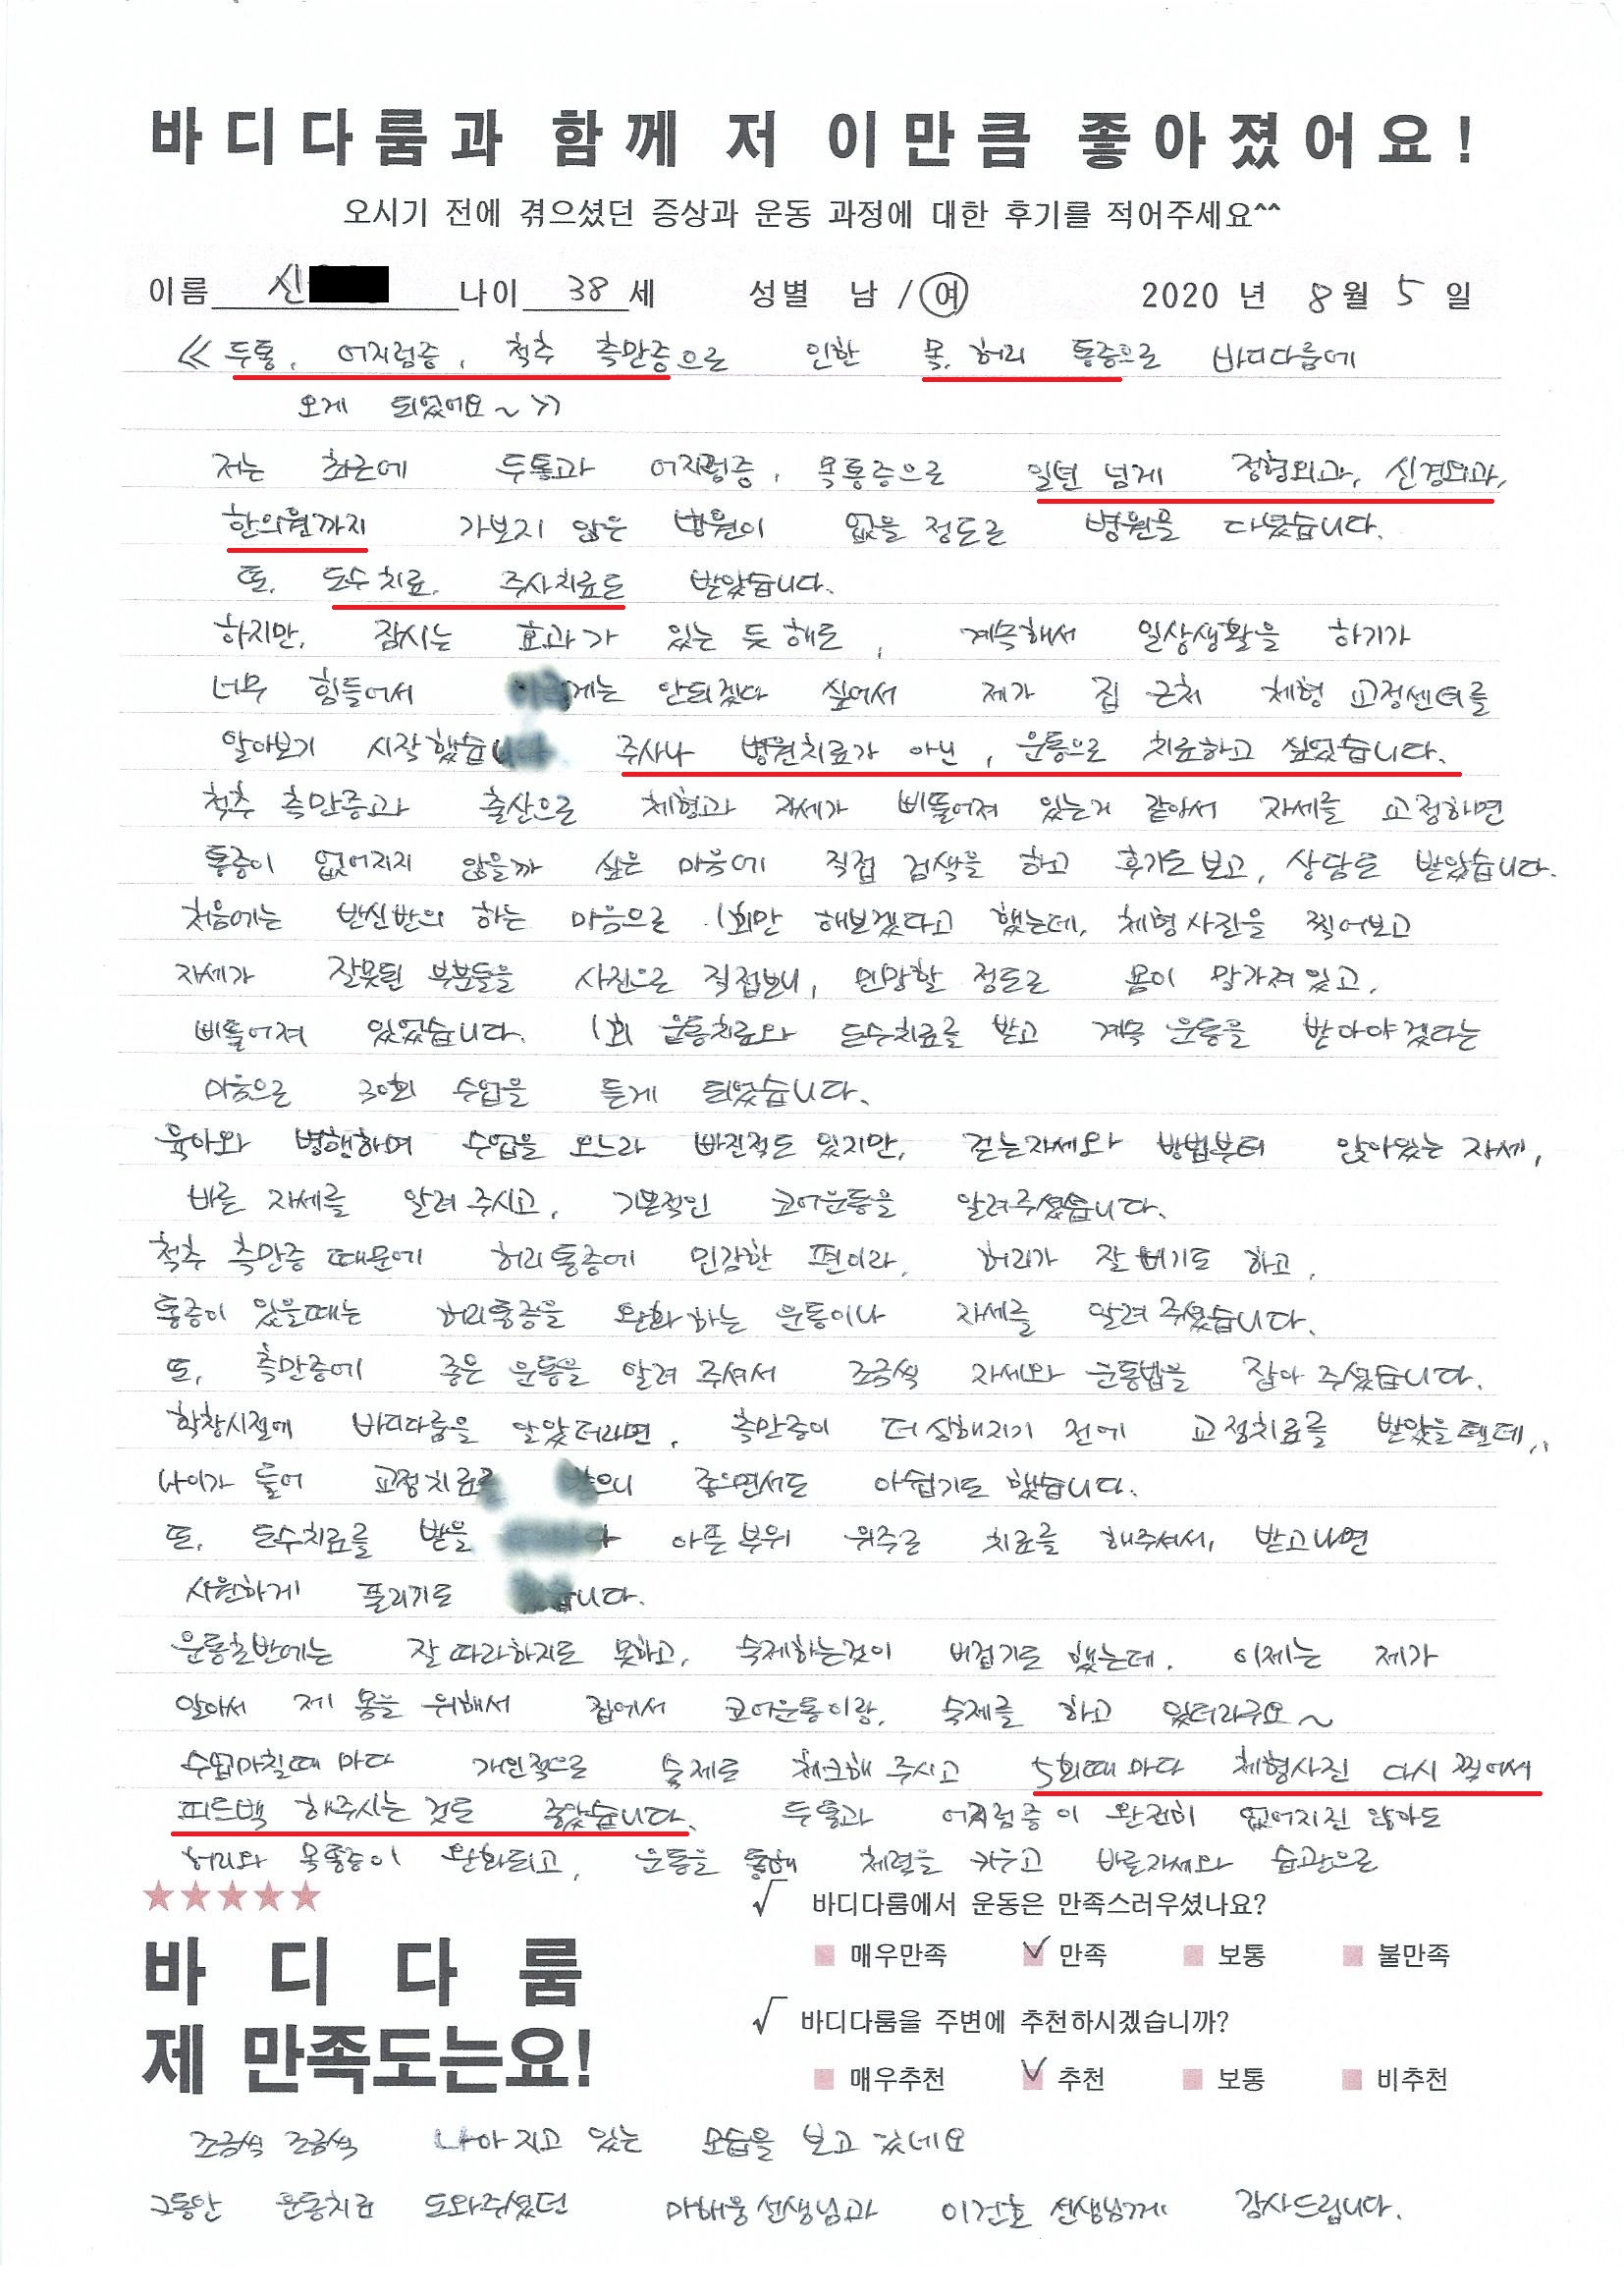 바디다룸과 함께 저 이만큼 좋아졌어요!
오시기 전에 겪으셨던 증상과 운동 과정에 대한 후기를 적어주세요^^
이름 신 나이 38 세 성별 남 / 여 2020 년 8월 5 일
<< 두통, 어지럼증, 척추 측만증으로 인한 목, 허리 통증으로 바디다룸에
오게 되었어요~ >>
저는 최근에 두통과 어지럼증, 목통증으로 일년 넘게 정형외과, 신경외과,
한의원까지 가보지 않은 병원이 없을 정도로 병원을 다녔습니다.
또, 도수치료, 주사치료도 받았습니다.
하지만, 잠시는 효과가 있는 듯 해도, 계속해서 일상생활을 하기가
너무 힘들어서 게는 안되겠다 싶어서 제가 집 근처 체형 교정센터를
알아보기 시작했습니다 주사나 병원치료가 아닌, 운동으로 치료하고 싶었습니다.
척추 측만증과 출산으로 체형과 자세가 삐뚤어져 있는거 같아서 자세를 교정하면
통증이 없어지지 않을까 싶은 마음에 직접 검색을 하고 후기도 보고, 상담도 받았습니다.
처음에는 반신반의 하는 마음으로 1회만 해보겠다고 했는데, 체형사진을 찍어보고
자세가 잘못된 부분들을 사진으로 직접보니, 민망할 정도로 몸이 망가져있고,
삐뚤어져 있었습니다. 1회 운동치료와 도수치료를 받고 계속 운동을 받아야겠다는
마음으로 30회 수업을 듣게 되었습니다.
육아와 병행하며 수업을 오느라 빠진적도 있지만, 걷는자세와 방법부터 앉아있는 자세,
바른 자세를 알려 주시고, 기본적인 코어운동을 알려주셨습니다.
척추 측만증 때문에 허리통증에 민감한 편이라, 허리가 잘 삐기도 하고,
통증이 있을때는 허리통증을 완화하는 운동이나 자세를 알려 주셨습니다.
또, 측만증에 좋은 운동을 알려 주셔서 조금씩 자세와 운동법을 잡아 주셨습니다.
학창시절에 바디다룸을 알았더라면, 측만증이 더 심해지기 전에 교정치료를 받았을텐데..
나이가 들어 교정치료를 받으니 좋으면서도 아쉽기도 했습니다.
또, 도수치료를 받을 아픈부위 위주로 치료를 해주셔서, 받고나면
시원하게 풀리기도 했습니다.
운동초반에는 잘 따라하지도 못하고, 숙제하는것이 버겁기도 했는데, 이제는 제가
알아서 제 몸을 위해서 집에서 코어운동이랑, 숙제를 하고 있더라구요~
수업마칠때 마다 개인적으로 숙제도 체크해 주시고 5회때마다 체형사진 다시 찍어서
피드백 해주시는 것도 좋았습니다. 두통과 어지럼증이 완전히 없어지진 않아도
허리와 목통증이 완화되고, 운동을 통해 체력을 키우고 바른자세와 습관으로
★★★★★
바디다룸
제 만족도는요!
√ 바디다룸에서 운동은 만족스러우셨나요?
매우만족 ✓ 만족 보통 불만족
√ 바디다룸을 주변에 추천하시겠습니까?
매우추천 ✓ 추천 보통 비추천
조금씩 조금씩 나아지고 있는 모습을 보고 있네요
그동안 운동치료 도와주셨던 마해웅선생님과 이건호 선생님께 감사드립니다.